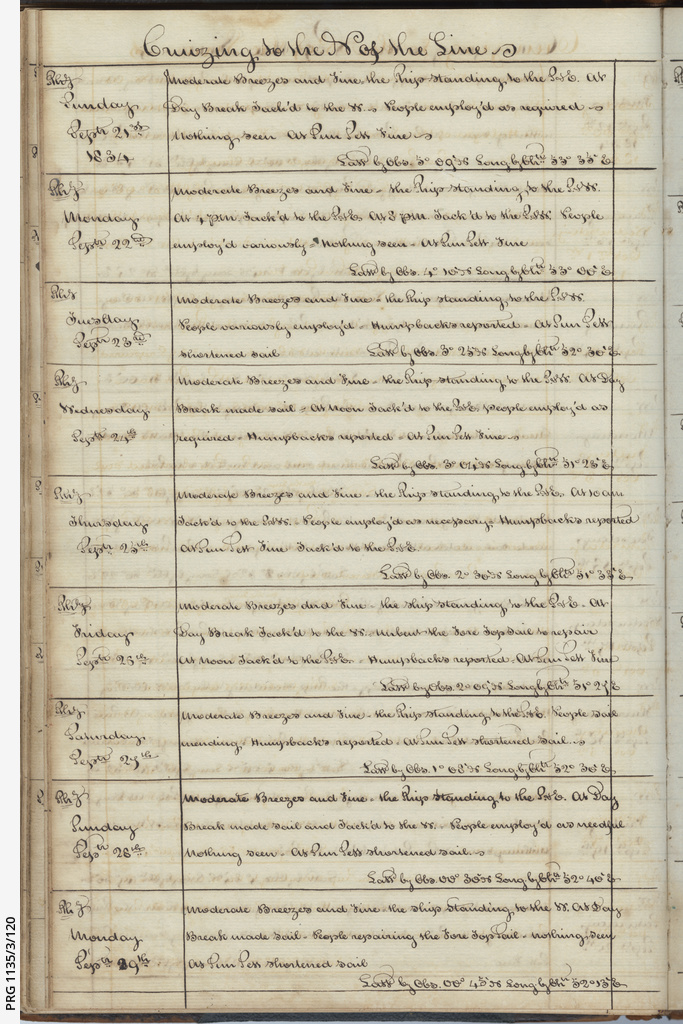 Cruizing to the N of the Line
Moderate Breezes and Fine, the Ship Standing to the At
Sunday Day Break Tack'd to the People employ'd as required
Septr 21st Nothing seen At Sun Sett Fine
1834 Latd by Obs. 3° 09' S Long by
Moderate Breezes and Fine - the Ship standing to the
Monday At 4 PM Tack'd to the At 8 PM Tack'd to the People
Septr 22nd employ'd variously - Nothing seen - At Sun Sett Fine
Latd by Obs. 4° 10' S Long by
Moderate Breezes and Fine - the Ship standing to the
Tuesday People variously employ'd - Humpbacks reported - At Sun Sett
Septr 23rd shortened sail Latd by Obs. 3° 25' S Long by
Moderate Breezes and Fine - the Ship standing to the At Day
Wednesday Break made sail - At Noon Tack'd to the People employ'd as
Septr 24th required - Humpbacks reported - At Sun Sett Fine
Latd by Obs. 3° 04' S Long by
Moderate Breezes and Fine - the Ship standing to the At 10 am
Thursday Tack'd to the People employ'd as necessary. Humpbacks reported
Septr 25th At Sun Sett Fine Tack'd to the
Latd by Obs. 2° 36' S Long by
Moderate Breezes and Fine - the ship standing to the At
Friday Day Break Tack'd to the Unbent the Fore Top Sail to repair
Septr 26th At Noon Tack'd to the Humpbacks reported - At Sun Sett Fine
Latd by Obs. 2° Long by
Moderate Breezes and Fine - the Ship standing to the People sail
Saturday mending, Humpbacks reported - At Sun Sett shortened sail
Septr 27th Latd by Obs. 1° Long by
Moderate Breezes and Fine - the Ship Standing to the At Day
Sunday Break made sail and Tack'd to the People employ'd as needful
Septr 28th Nothing seen - At Sun Sett shortened sail
Latd by Obs. 00° 36' S Long by
Moderate Breezes and Fine - the ship Standing to the At Day
Monday Break made sail - People repairing the Fore Top Sail - nothing seen
Septr 29th At Sun Sett shortened sail
Latd by Obs. 00° 45' S Long by
PRG 1135/3/120